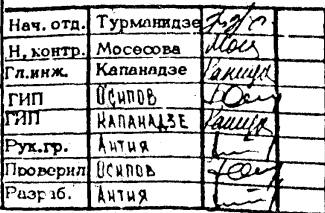 Нач. отд. Турманидзе
Н. контр. Мосесова
Гл.инж. Капанадзе
ГИП Осипов
ГИП Капанадзе
Рук.гр. Антия
Проверил Осипов
Разраб. Антия